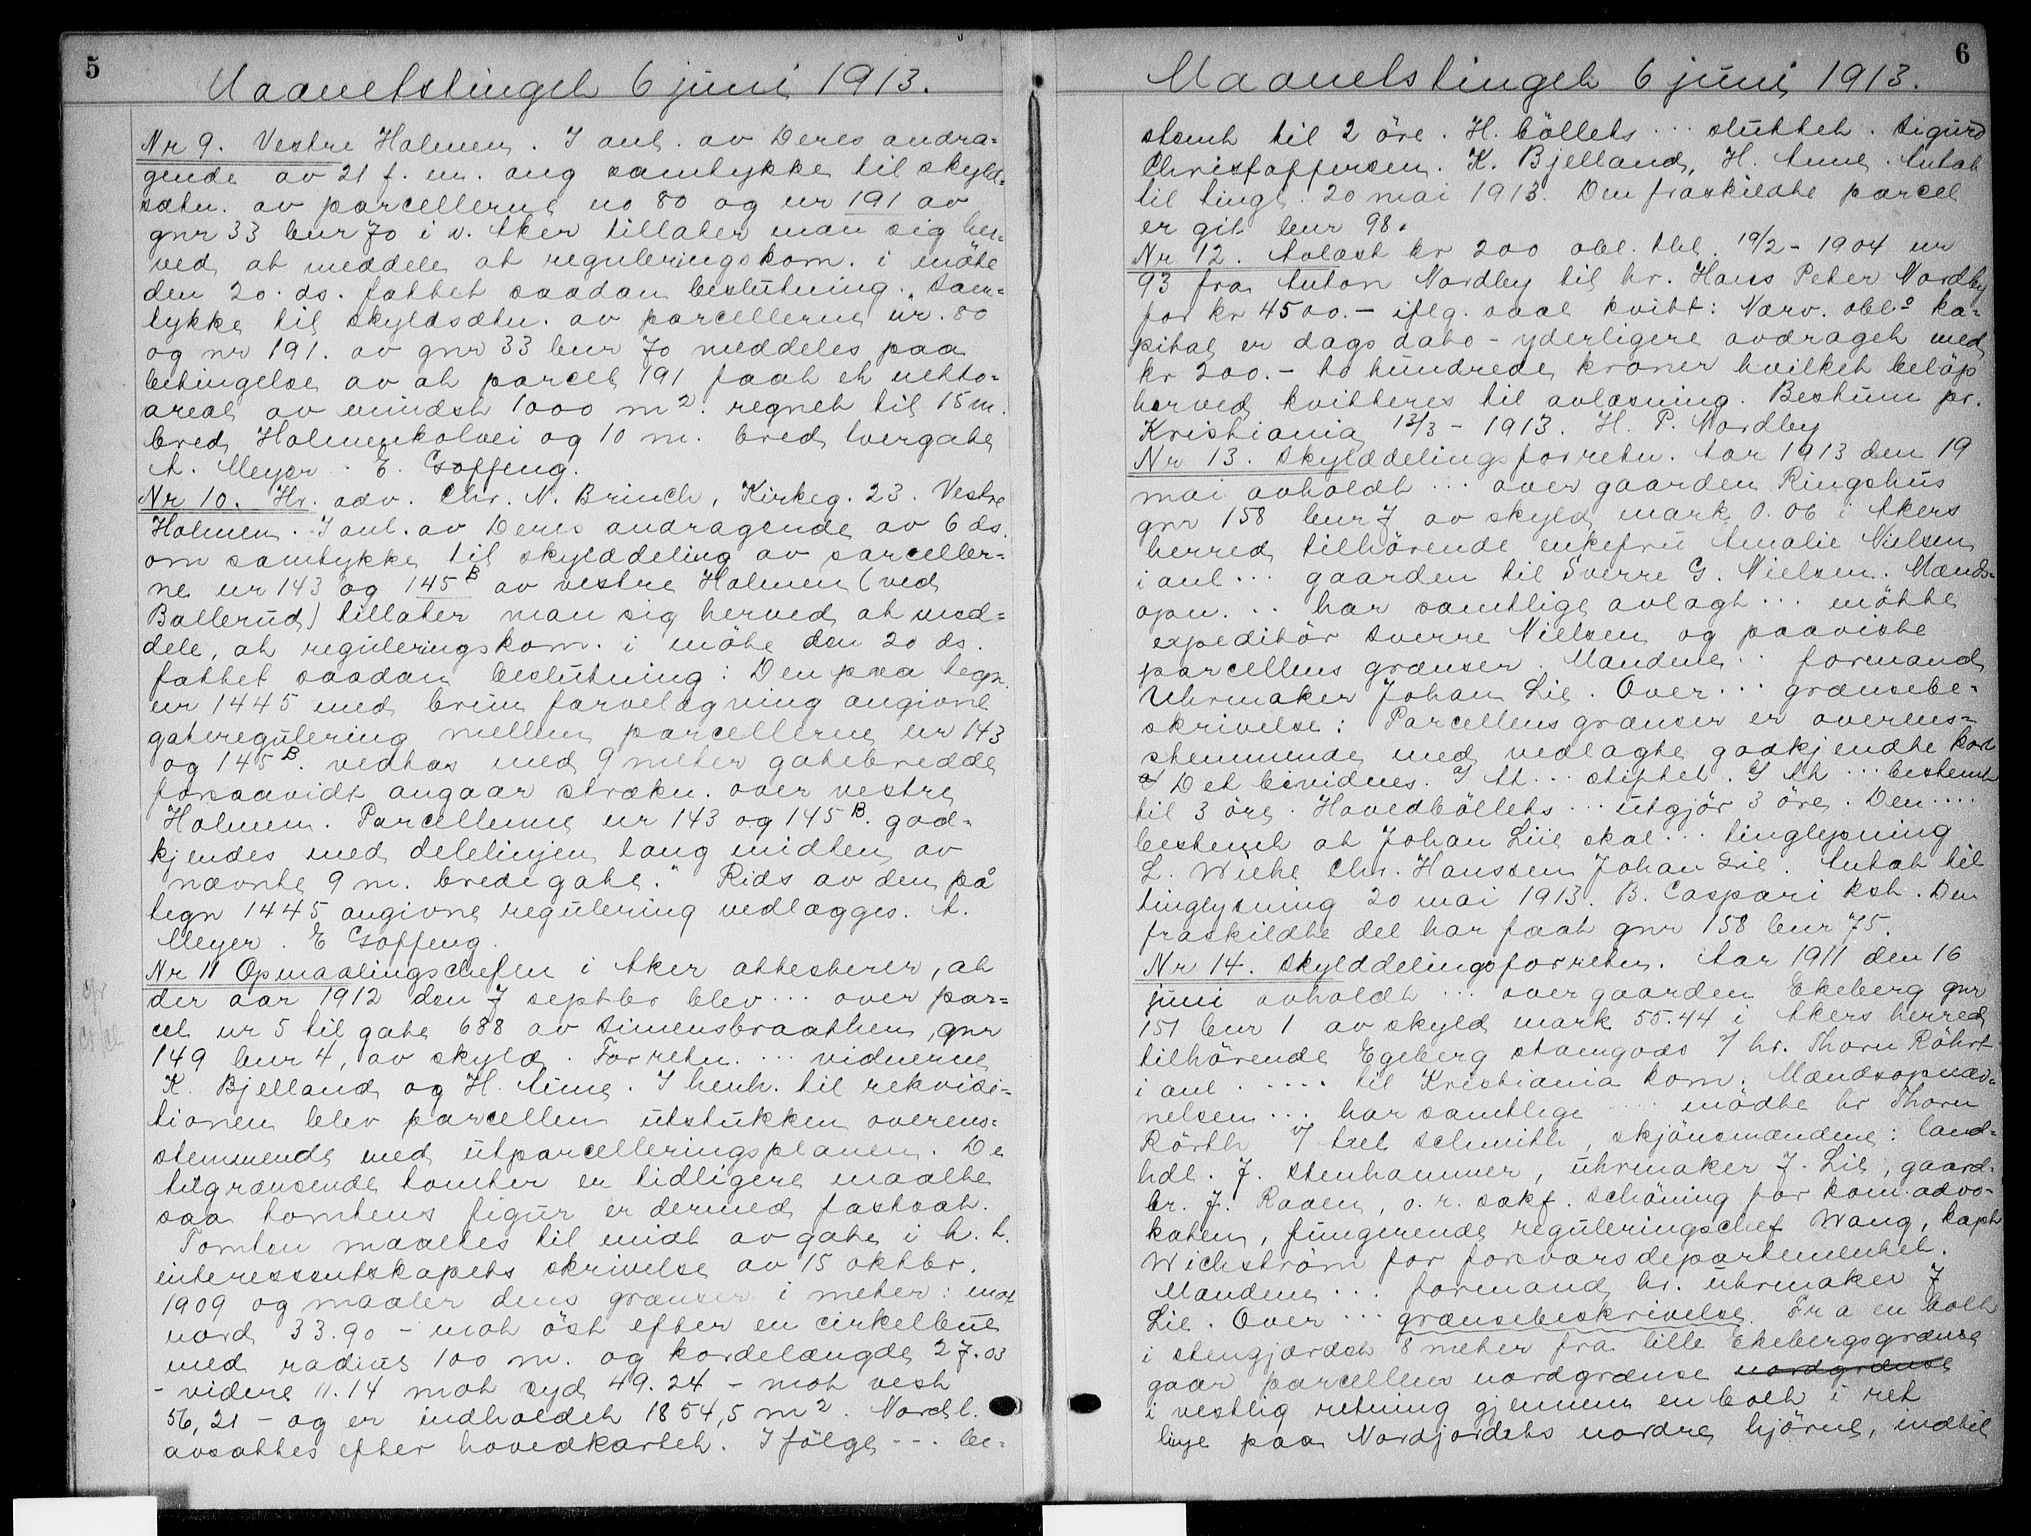 5
Maanetstinget 6 juni 1913.
Nr 9. Vestre Holmen. I anl. av Deres andra-
gende av 21 f. m. ang samtykke til skyld-
sætn. av parcellerne no 80 og nr 191 av
gnr 33 bnr 70 i v. Aker tillater man sig her-
ved at meddele at reguleringskom. i møte
den 20. ds. fattet saadan beslutning. "Sam-
tykke til skyldsætn. av parcellerne nr. 80
og nr 191. av gnr 33 bnr 70 meddeles paa
betingelse av at parcel 191 faar et netto-
areal av mindst 1000 m². regnet til 15 m.
bred Holmenkolvei og 10 m. bred tvergate
A. Meyer. E. Goffeng.
Nr 10. Hr. adv. Chr. N. Brinch, Kirkeg. 23. Vestre
Holmen. I anl. av Deres andragende av 6 ds.
om samtykke til skylddeling av parceller-
ne nr 143 og 145 B av vestre Holmen (ved
Ballerud) tillater man sig herved at med-
dele, at reguleringskom. i møte den 20 ds.
fattet saadan beslutning: Den paa tegn.
nr 1445 med brun farvelægning angivne
gateregulering mellem parcellerne nr 143
og 145 B. vedtas med 9 meter gatebredde
forsaavidt angaar strækn. over vestre
Holmen. Parcellerne nr 143 og 145 B. god-
kjendes med delelinjen lang midten av
nævnte 9 m. brede gate." Rids av den på
tegn 1445 angivne regulering vedlægges. A.
Meyer. E Goffeng.
Nr 11 Opmaalingschefen i Aker attesterer, at
der aar 1912 den 7 septbr blev ... over par-
cel nr 5 til gate 688 av Simensbraathen, gnr
149 bnr 4, av skyld. Forretn. ... vidnerne
K. Bjelland og H. Aune. I henh. til rekvisi-
tionen blev parcellen utstukken overens-
stemmende med utparcelleringsplanen. De
tilgrænsende tomter er tidligere maalte
saa tomtens figur er dermed fastsat.
Tomten maaltes til midt av gate i h. t.
interessentskapets skrivelse av 15 oktbr.
1909 og maaler dens grænser i meter: mot
nord 33.90 - mot öst efter en cirkelbue
med radius 100 m. og kordelængde 27.03
- videre 11.14 mot syd 49.24 - mot vest
56,21 - og er indholdet 1854,5 m². Nordl.
avsattes efter hovedkartet. I følge --- be-
6
Maanetstinget 6 juni 1913.
stemt til 2 öre. H. bøllets ... sluttet. Sigurd
Christoffersen. K. Bjelland, H. Aune. Antat
til tingl. 20 mai 1913. Den fraskildte parcel
er git bnr 98.
Nr 12. Avlæst kr 200 obl. tbl. 19/2 - 1904 nr
93 fra Anton Nordby til hr. Hans Peter Nordby
for kr 4500.- iflg. saal kvitt: Nærv. obl.s ka-
pital er dags dato - yderligere avdraget med
kr 200.- to hundrede kroner hvilket beløp
herved kvitteres til avlæsning. Bestum pr.
Kristiania 13/3 - 1913. H. P. Nordby
Nr 13. Skylddelingsforretn. Aar 1913 den 19
mai avholdt ... over gaarden Ringshus
gnr 158 bnr 7 av skyld mark 0.06 i Akers
herred tilhørende enkefru Amalie Nielsen
i anl ... gaarden til Sverre G. Nielsen. Mænds-
opn. ... har samtlige avlagt ... møtte
expeditör Sverre Nielsen og paaviste
parcellens grænser. Mændene .. formand
Uhrmaker Johan Lie. Over ... grænsebe-
skrivelse: Parcellens grænser er overens-
stemmende med vedlagte godkjendte kart
Det bevidnes. I At ... stiftet. I At ... bestemt
til 3 öre. Hovedbøllets ... utgjör 3 öre. Den ....
bestemt at Johan Liie skal ... tinglysning
L. Wiche Chr. Hanssen Johan Lie. Antat til
tinglysning 20 mai 1913. B. Caspari kst. Den
fraskildte del har faat gnr 158 bnr 75.
Nr 14. Skylddelingsforretn. Aar 1911 den 16
juni avholdt ... over gaarden Ekeberg gnr
151 bnr 1 av skyld mark 55.44 i Akers herred
tilhörende Egeberg stamgods v/ hr. Thorv Röhrt
i anl ..... til Kristiania kom. Mændsopnæv-
nelsen ... har samtlige ... mödte hr Thorv
Rörth v/ Axel Schmith, skjönsmændene: land-
hdl. J. Stenhammer, uhrmaker J. Lie, gaard-
br. J. Raaen, o. r. sakf. Schöning for kom. advo-
katen, fungerende reguleringschef Wang, kapt
Wichström for forsvarsdepartementet.
Mændene ... formand hr. uhrmaker J
Lie. Over ... grænsebeskrivelse. Fra en bolt
i stengjærdet 8 meter fra lille Ekebergsgrænse
gaar parcellens nordgrænse nordgrænse
i vestlig retning gjennem en bolt i ret
linje paa Nordjordets nordre hjörne, indtil